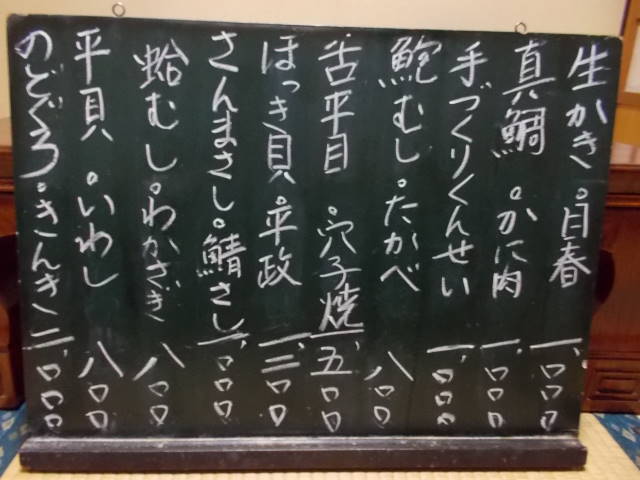 生かき。目春 一、〇〇〇
真鯛。かに肉 一、〇〇〇
手づくりくんせい 一、〇〇〇
鮑むし。たかべ 八〇〇
舌平目。穴子焼 一、五〇〇
ほっき貝。平政 一、三〇〇
さんまさし。鯖さし 一、〇〇〇
蛤むし。わかさぎ 八〇〇
平貝。いわし 八〇〇
のどぐろ。きんき 二、〇〇〇